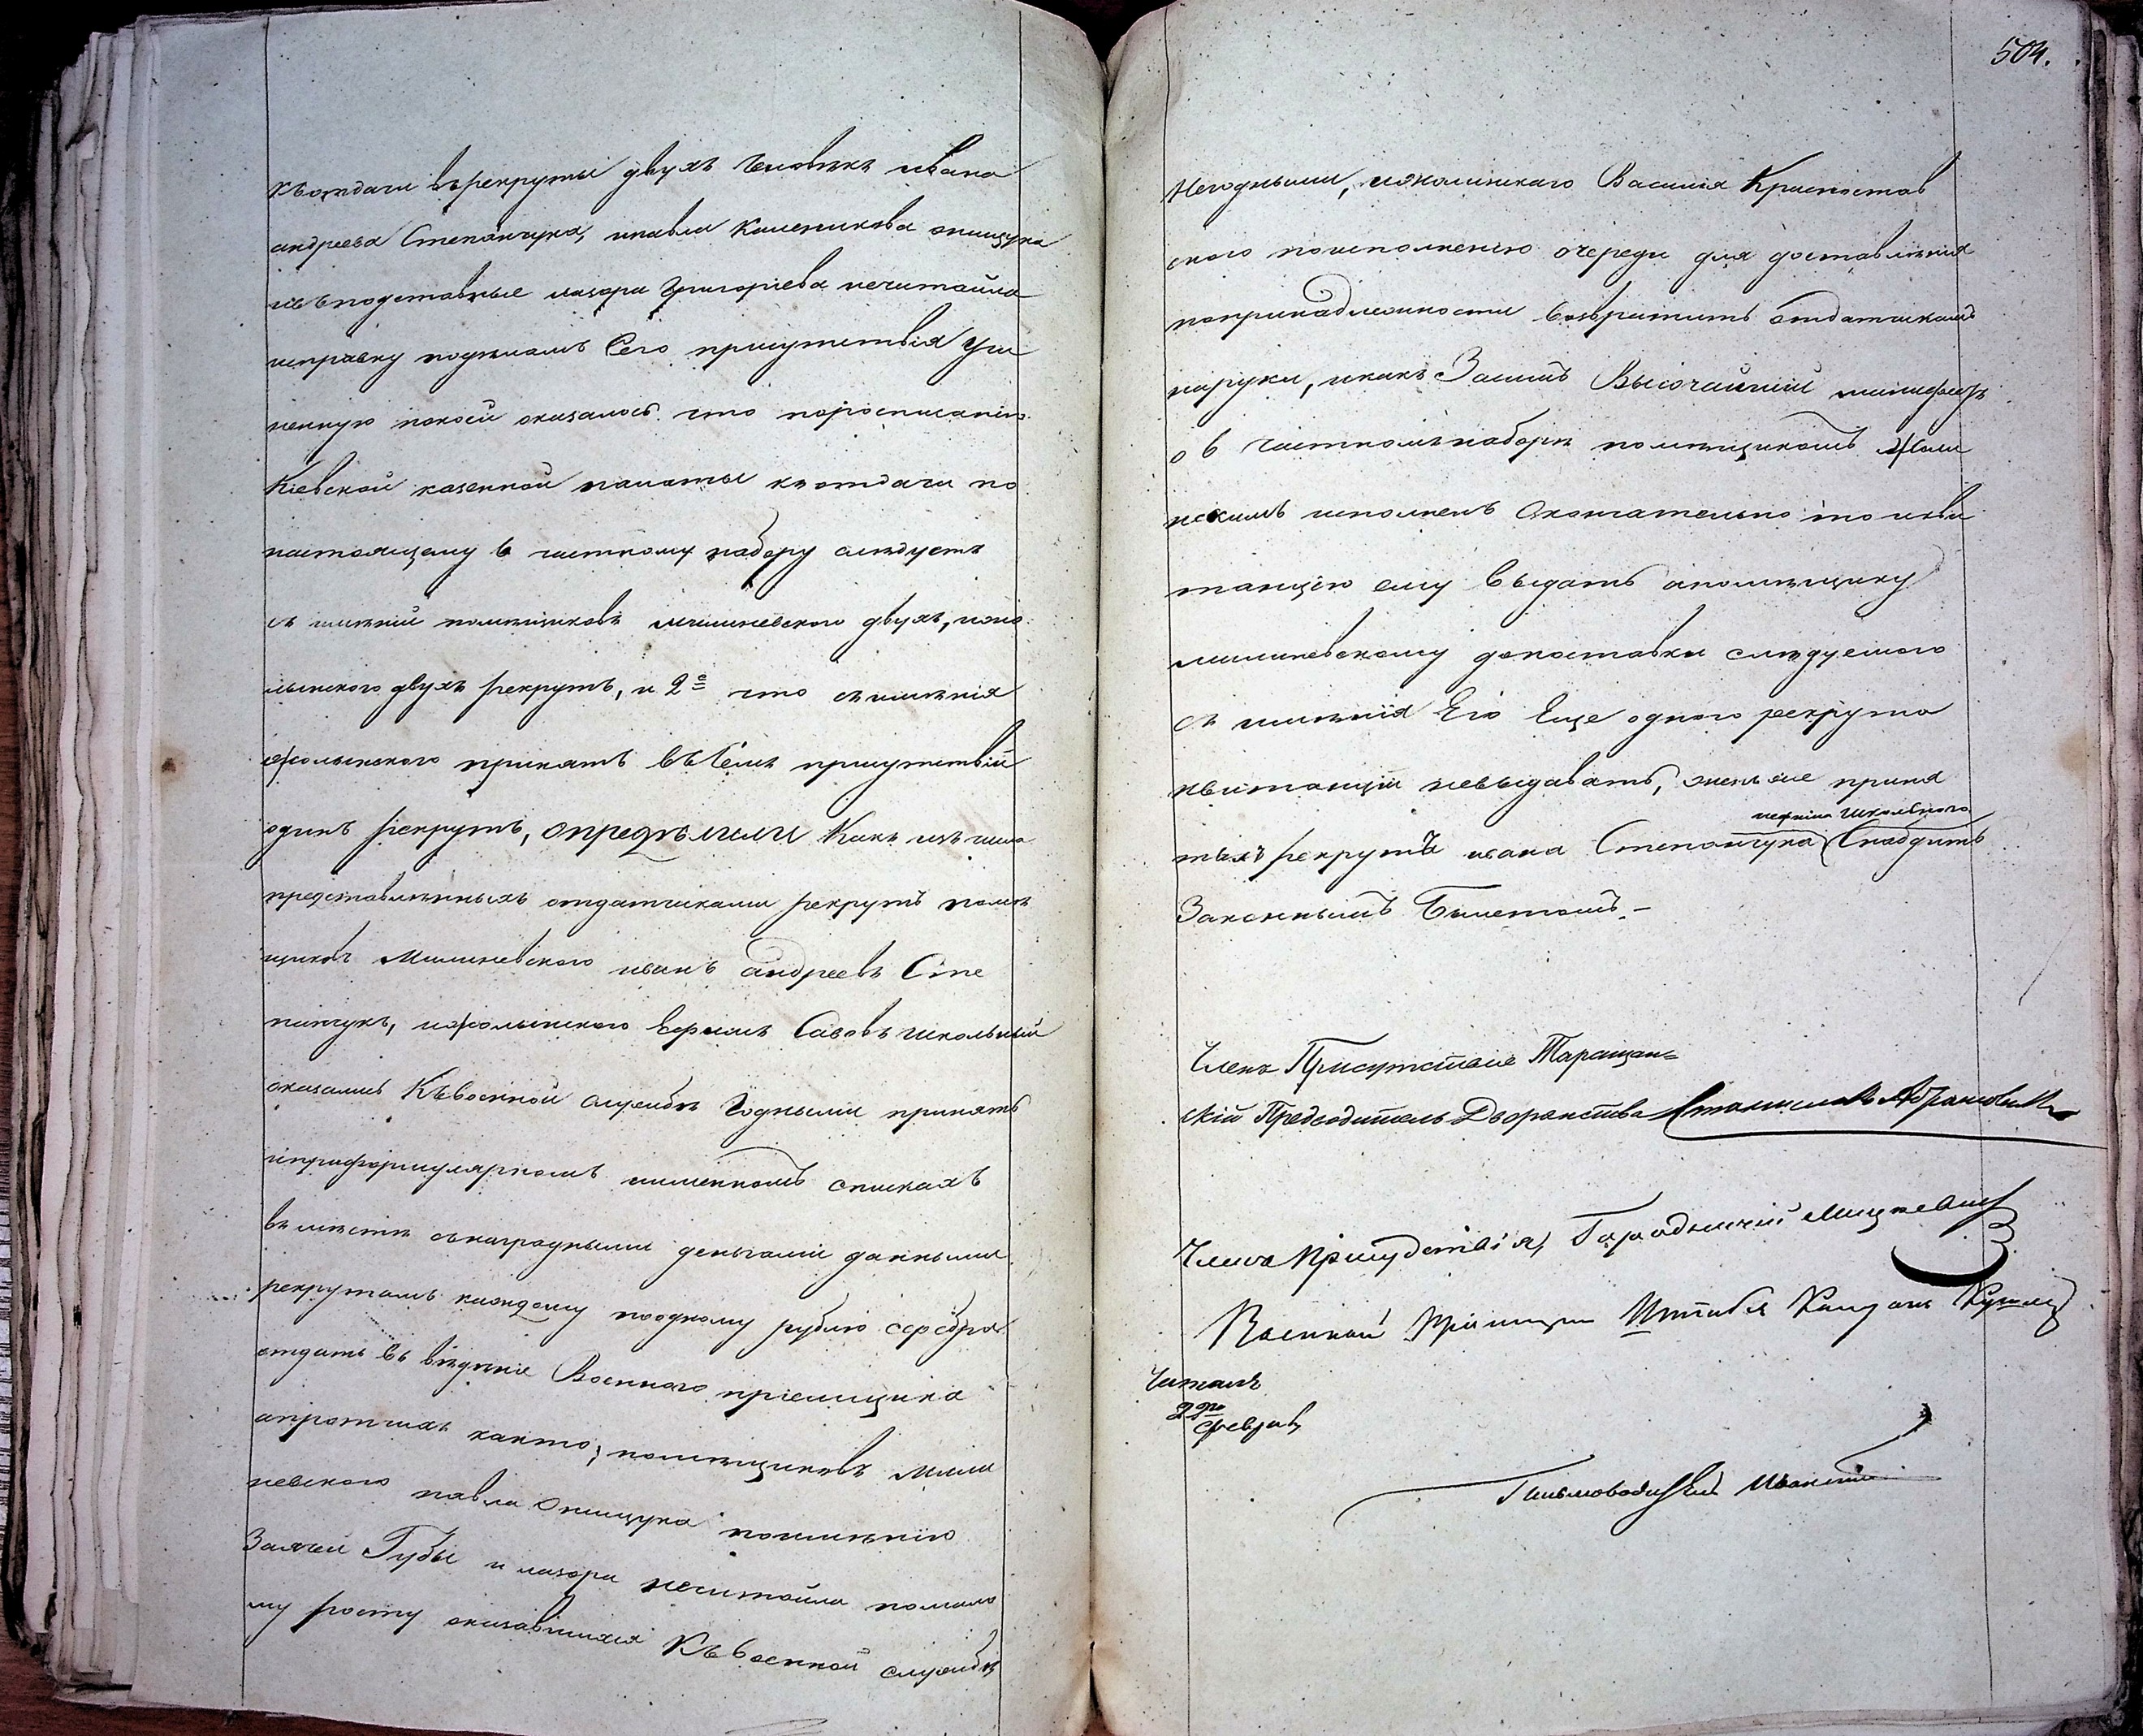 къотдачи въ рекруты двухъ человѣкъ ивана
андреева Степанчука, ипавла Каленикова онищука
подставные лазаря Григорiева нечитайла
исправку подѣламъ Сего присутствiя учи
ненную покоей оказалось что поросписанiю
Кiевской казенной палаты къ отдачи по
настоящему 6 частному набору слѣдуетъ
съ имѣнiй помѣщиковъ двухъ,
двухъ рекрутъ, и 2е что съимѣнiя
принятъ въСемъ присутствiи
одинъ рекрутъ, опредѣлили Какъ изъ числа
представлѣнныхъ отдатчиками рекрутъ помѣ
щиковъ Милиневского иванъ андреевъ Сте
панчукъ, Сававъ школьный
оказались Къвоенной службѣ Годными принять
иприформулярномъ имменномъ спискахъ
въ мѣстѣ снаградными деньгами данными
рекрутамъ каждому поодному рублю серебра
отдать въ вѣденiе Военного прiемщика
апротчихъ както, помѣщиковъ Мили
невского павла Онищука поимѣнiю
Заячей Губы и лазаря нечитайла помало
му росту оказавшихся Къ военной службѣ
504.
Негодными, Василiя
ского поисполненiю очереди для доставлѣнiя
попринадлежности возвратить отдатчикамъ
наруки, икакъ Засимъ Высочайшiй манифестъ
о 6 частномъ наборѣ помѣщикомъ
нскимъ исполненъ Окончательно то кви
танцiю ему выдать апомѣщику
милиневскому допоставки слѣдуемого
съ имѣнiя Его Еще одного рекрута
квитанцiи невыдавать, приня
школьного
тыхъ рекрутъ ивана Степанчука Снабдить
Законнымъ Билетомъ.–
Членъ Присутствiя Таращан=
скiй Предводитель Дворянства Станиславъ Абрамовичъ
Члена Присудствiя, Городничiй Мицкевичь
Военный Штабсъ Капитанъ
Читалъ
2го
Феврал
Письмоводитель